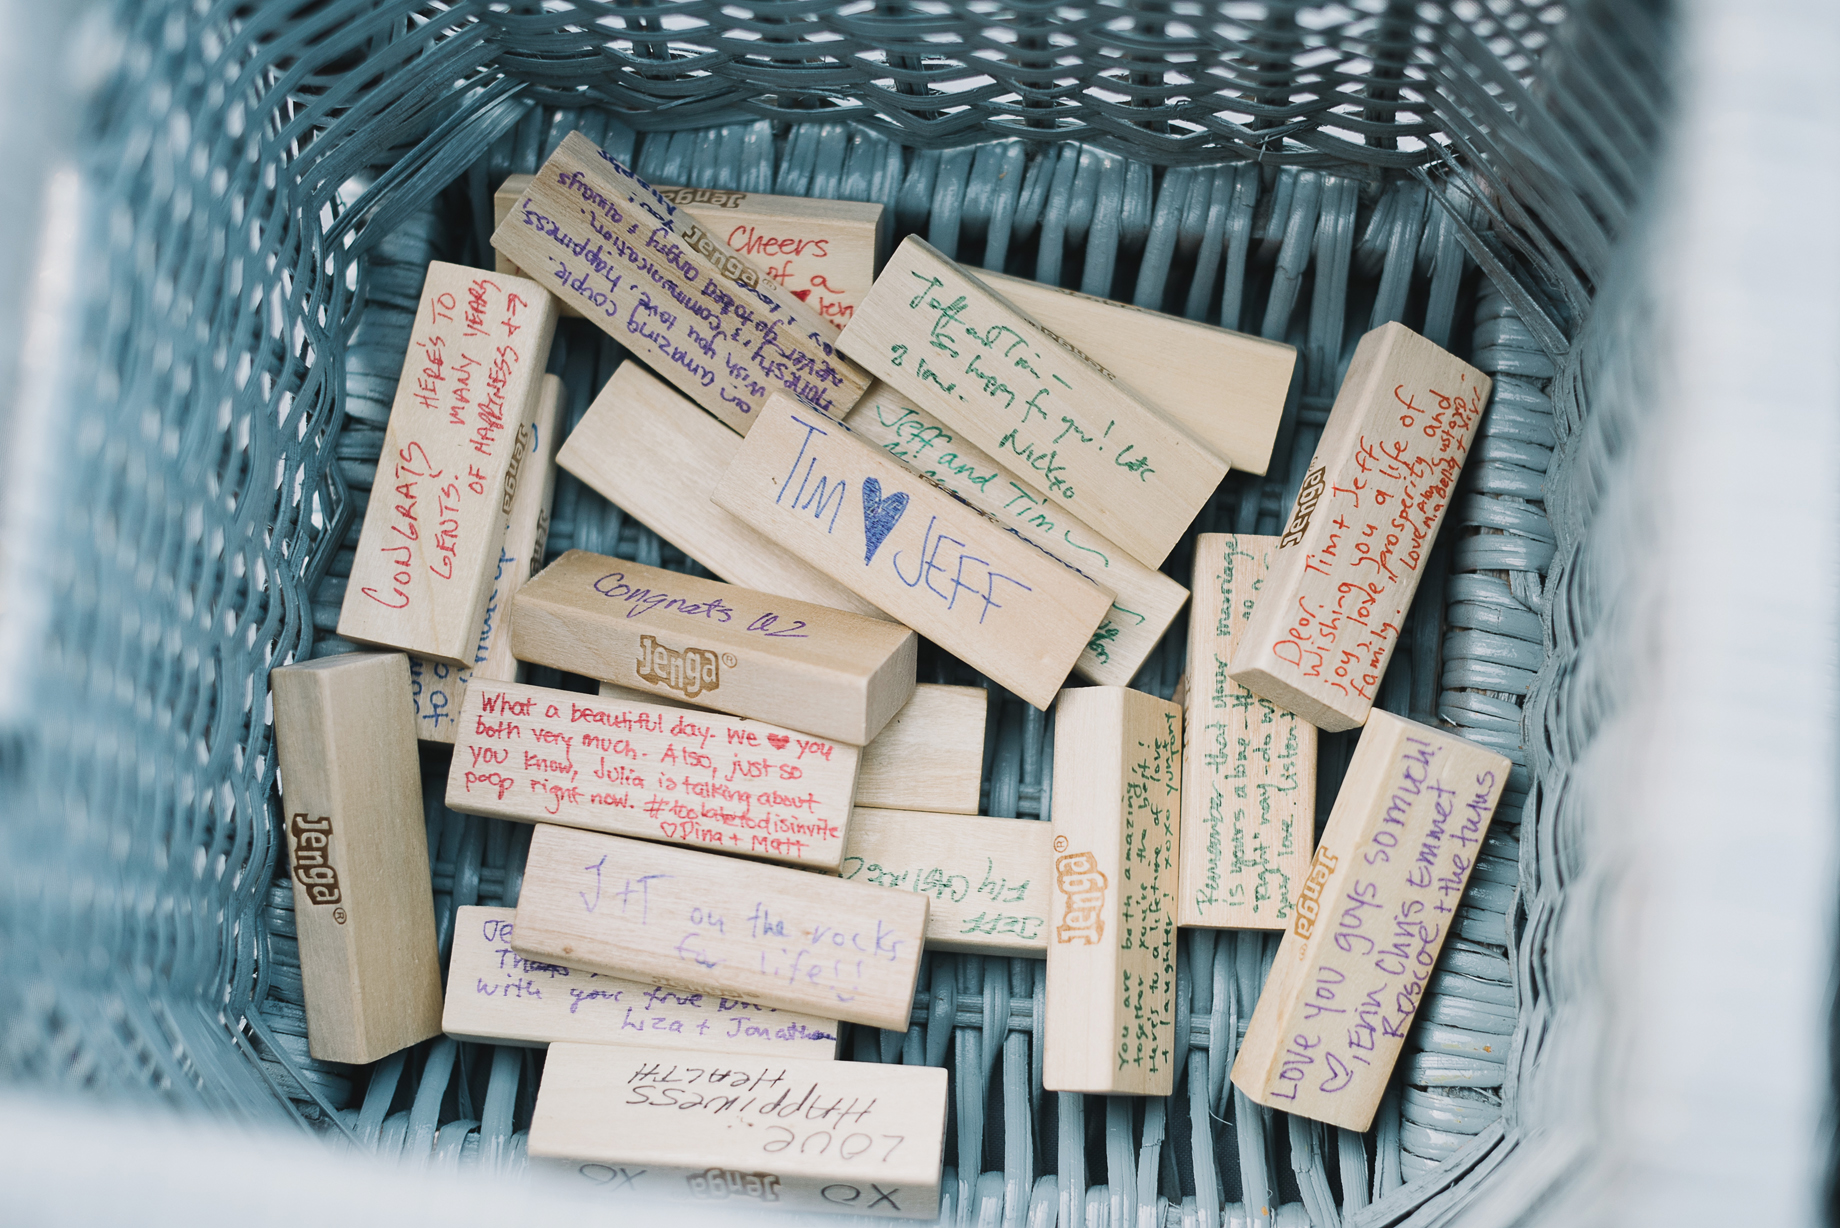 Jenga
Cheers
of a
Jenga®
an amazing couple.
wish you love, happiness,
honesty, & communication.
never go to bed angry & always
Jeff and Tim –
So happy for you!
& love.
Nick
CONGRATS
GENTS!
HERE'S TO
MANY YEARS
OF HAPPINESS
Jenga
Jeff and Tim
TIM ♥ JEFF
Jenga®
Dear Tim + Jeff
Wishing you a life of
joy, love, prosperity and
family.
Love,
Congrats U2
Jenga®
to
What a beautiful day. We ♥ you
both very much. Also, just so
you know, Julia is talking about
poop right now. #toolatetodisinvite
♡ Dina + Matt
Jenga®
Remember that your marriage
is yours alone – there
"right" way – do
your love. Listen
Jenga®
You are both amazing,
together you're the best!
Here's to a lifetime of love
+ laughter! xoxo
JEFF
Jenga®
Love you guys so much!
♡ Erin Chris Emmet
Roscoe + the tunus
J+T on the rocks
for life!!
Je
Thanks
with your
Liza + Jonathan
LOVE
HAPPINESS
HEALTH
XO Jenga XO